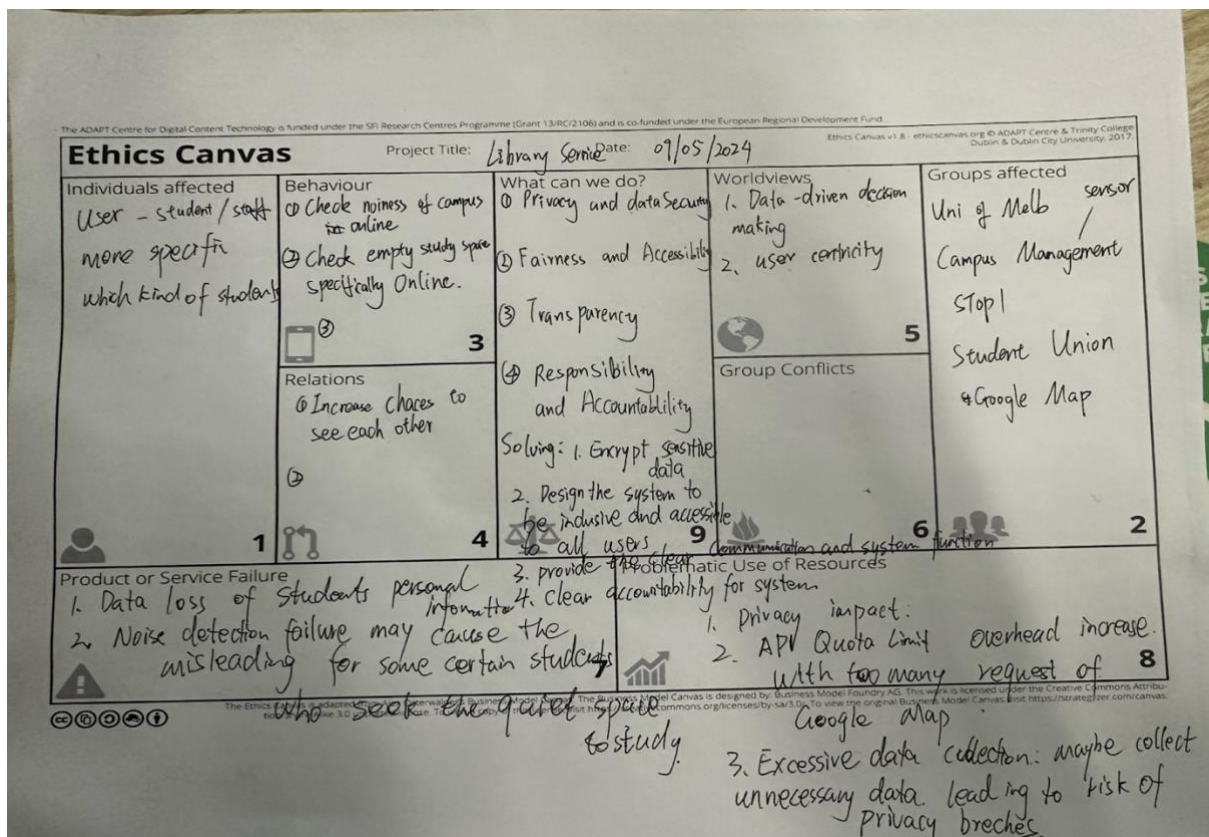 The ADAPT Centre for Digital Content Technology is funded under the SFI Research Centres Programme (Grant 13/RC/2106) and is co-funded under the European Regional Development Fund.
Ethics Canvas v1.8 - ethicscanvas.org © ADAPT Centre & Trinity College
Dublin & Dublin City University, 2017.
Ethics Canvas
Project Title: Library Service
Date: 09/05/2024
Individuals affected
User - student/staff
more specific
which kind of students
1
Behaviour
① Check noiness of campus
online
② Check empty study space
specifically Online.
③
3
Relations
① Increase chaces to
see each other
②
4
What can we do?
① Privacy and data Security
② Fairness and Accessibility
③ Transparency
④ Responsibility
and Accountablility
Solving: 1. Encrypt sensitive
data
2. Design the system to
be inclusive and accessible
to all users
3. provide the clear communication and system function
4. clear accountability for system
9
Worldviews
1. Data-driven decision
making
2. user centricity
5
Group Conflicts
6
Groups affected
Uni of Melb
sensor
Campus Management
STOP1
Student Union
Google Map
2
Product or Service Failure
1. Data loss of students personal
information
2. Noise detection failure may cause the
misleading for some certain students
who seek the quiet space
to study.
7
Problematic Use of Resources
1. Privacy impact:
2. API Quota Limit overhead increase.
with too many request of
Google Map
3. Excessive data collection: maybe collect
unnecessary data. leading to risk of
privacy breches
8
The Ethics
is adapted
Business Model Canvas is designed by: Business Model Foundry AG. This work is licensed under the Creative Commons Attribu-
3.0
commons.org/licenses/by-sa/3.0/. To view the original Business Model Canvas, visit https://strategyzer.com/canvas.